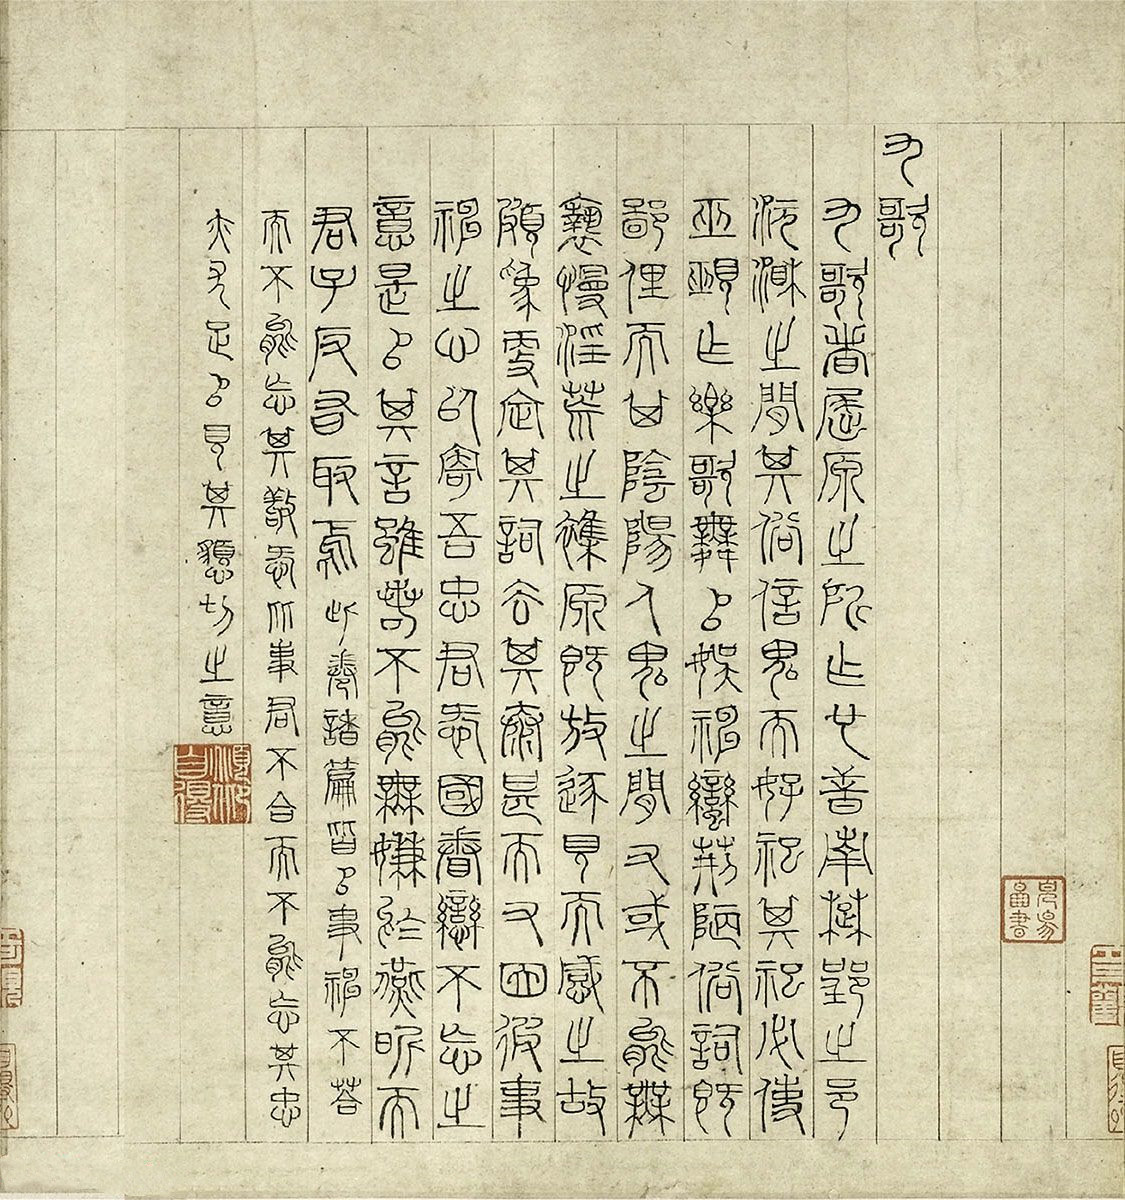 九歌
九歌者屈原之所作也昔南楚郢之邑
沅湘之間其俗信鬼而好祀其祀必使
巫覡作樂歌舞以娛神蠻荊陋俗詞既
鄙俚而其陰陽人鬼之間又或不能無
褻慢淫荒之雜原既放逐見而感之故
頗為更定其詞去其泰甚而又因彼事
神之心以寄吾忠君愛國眷戀不忘之
意是以其言雖若不能無嫌於燕昵而
君子反有取焉此卷諸篇皆以事神不答
而不能忘其敬愛比事君不合而不能忘其忠
赤尤足以見其懇切之意